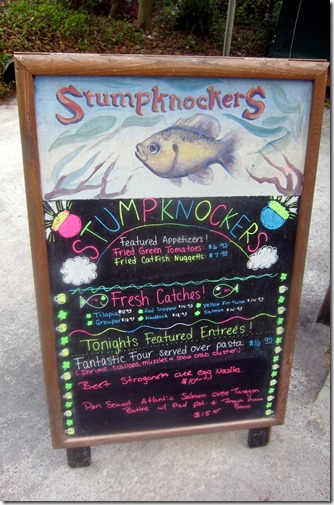 Stumpknockers
STUMPKNOCKERS
Featured Appetizers!
Fried Green Tomatoes $6.95
Fried Catfish Nuggetts $7.95
Fresh Catches!
Tilapia Red Snapper Yellow Fin Tuna
Grouper Haddock Salmon
Tonights Featured Entrees!
Fantastic Four served over pasta $16.95
(Shrimp, scallops, mussles & snow crab cluster)
Beef Stroganoff over Egg Noodles
Pan Seared Atlantic Salmon over Tarragon
Butter w/ Red pot. &